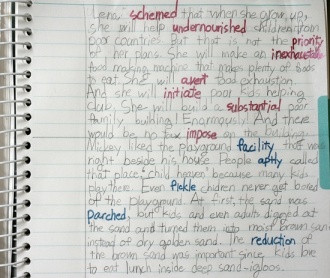 Lena schemed that when she grow up,
she will help undernourished children from
poor countries. But that is not the priority
of her plans. She will make an inexhaustable
food making machine that makes plenty of foods
to eat. She will avert food exhaustion.
And she will initiate poor kids helping
club. She will build a substantial poor
family building! Enormously! And there
would be no tax impose on the building.
Mickey liked the playground facility that was
right beside his house. People aptly called
that place: child heaven because many kids
play there. Even fickle chidren never get bored
of the playground. At first, the sand was
parched, but kids and even adults digned at
the sand and turned them into moist brown sand
instead of dry golden sand. The reduction of
the brown sand was important since kids love
to eat lunch inside deep sand-igloos.